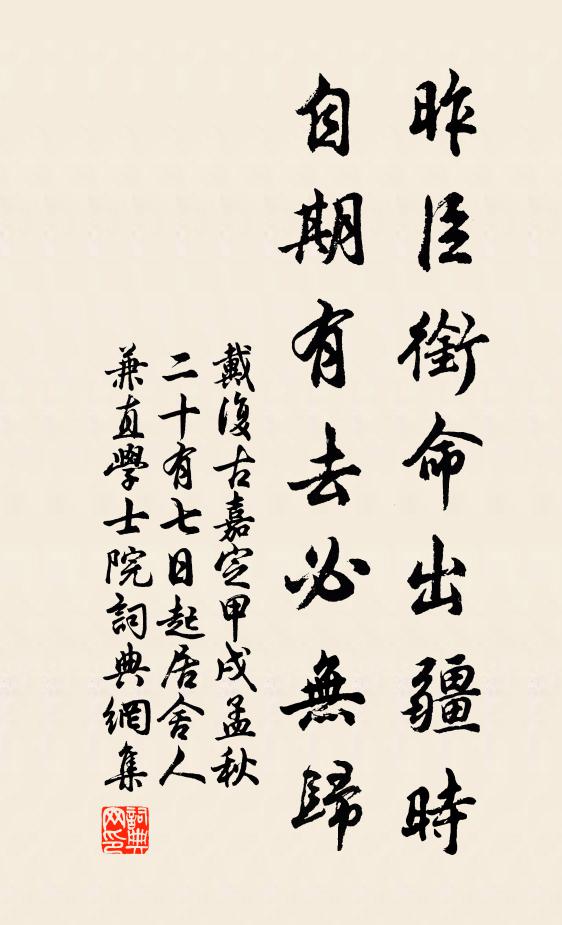 昨臣銜命出疆時
自期有去必無歸
戴復古嘉定甲戌孟秋
二十有七日起居舍人
兼直學士院詞典網集
詞典网印